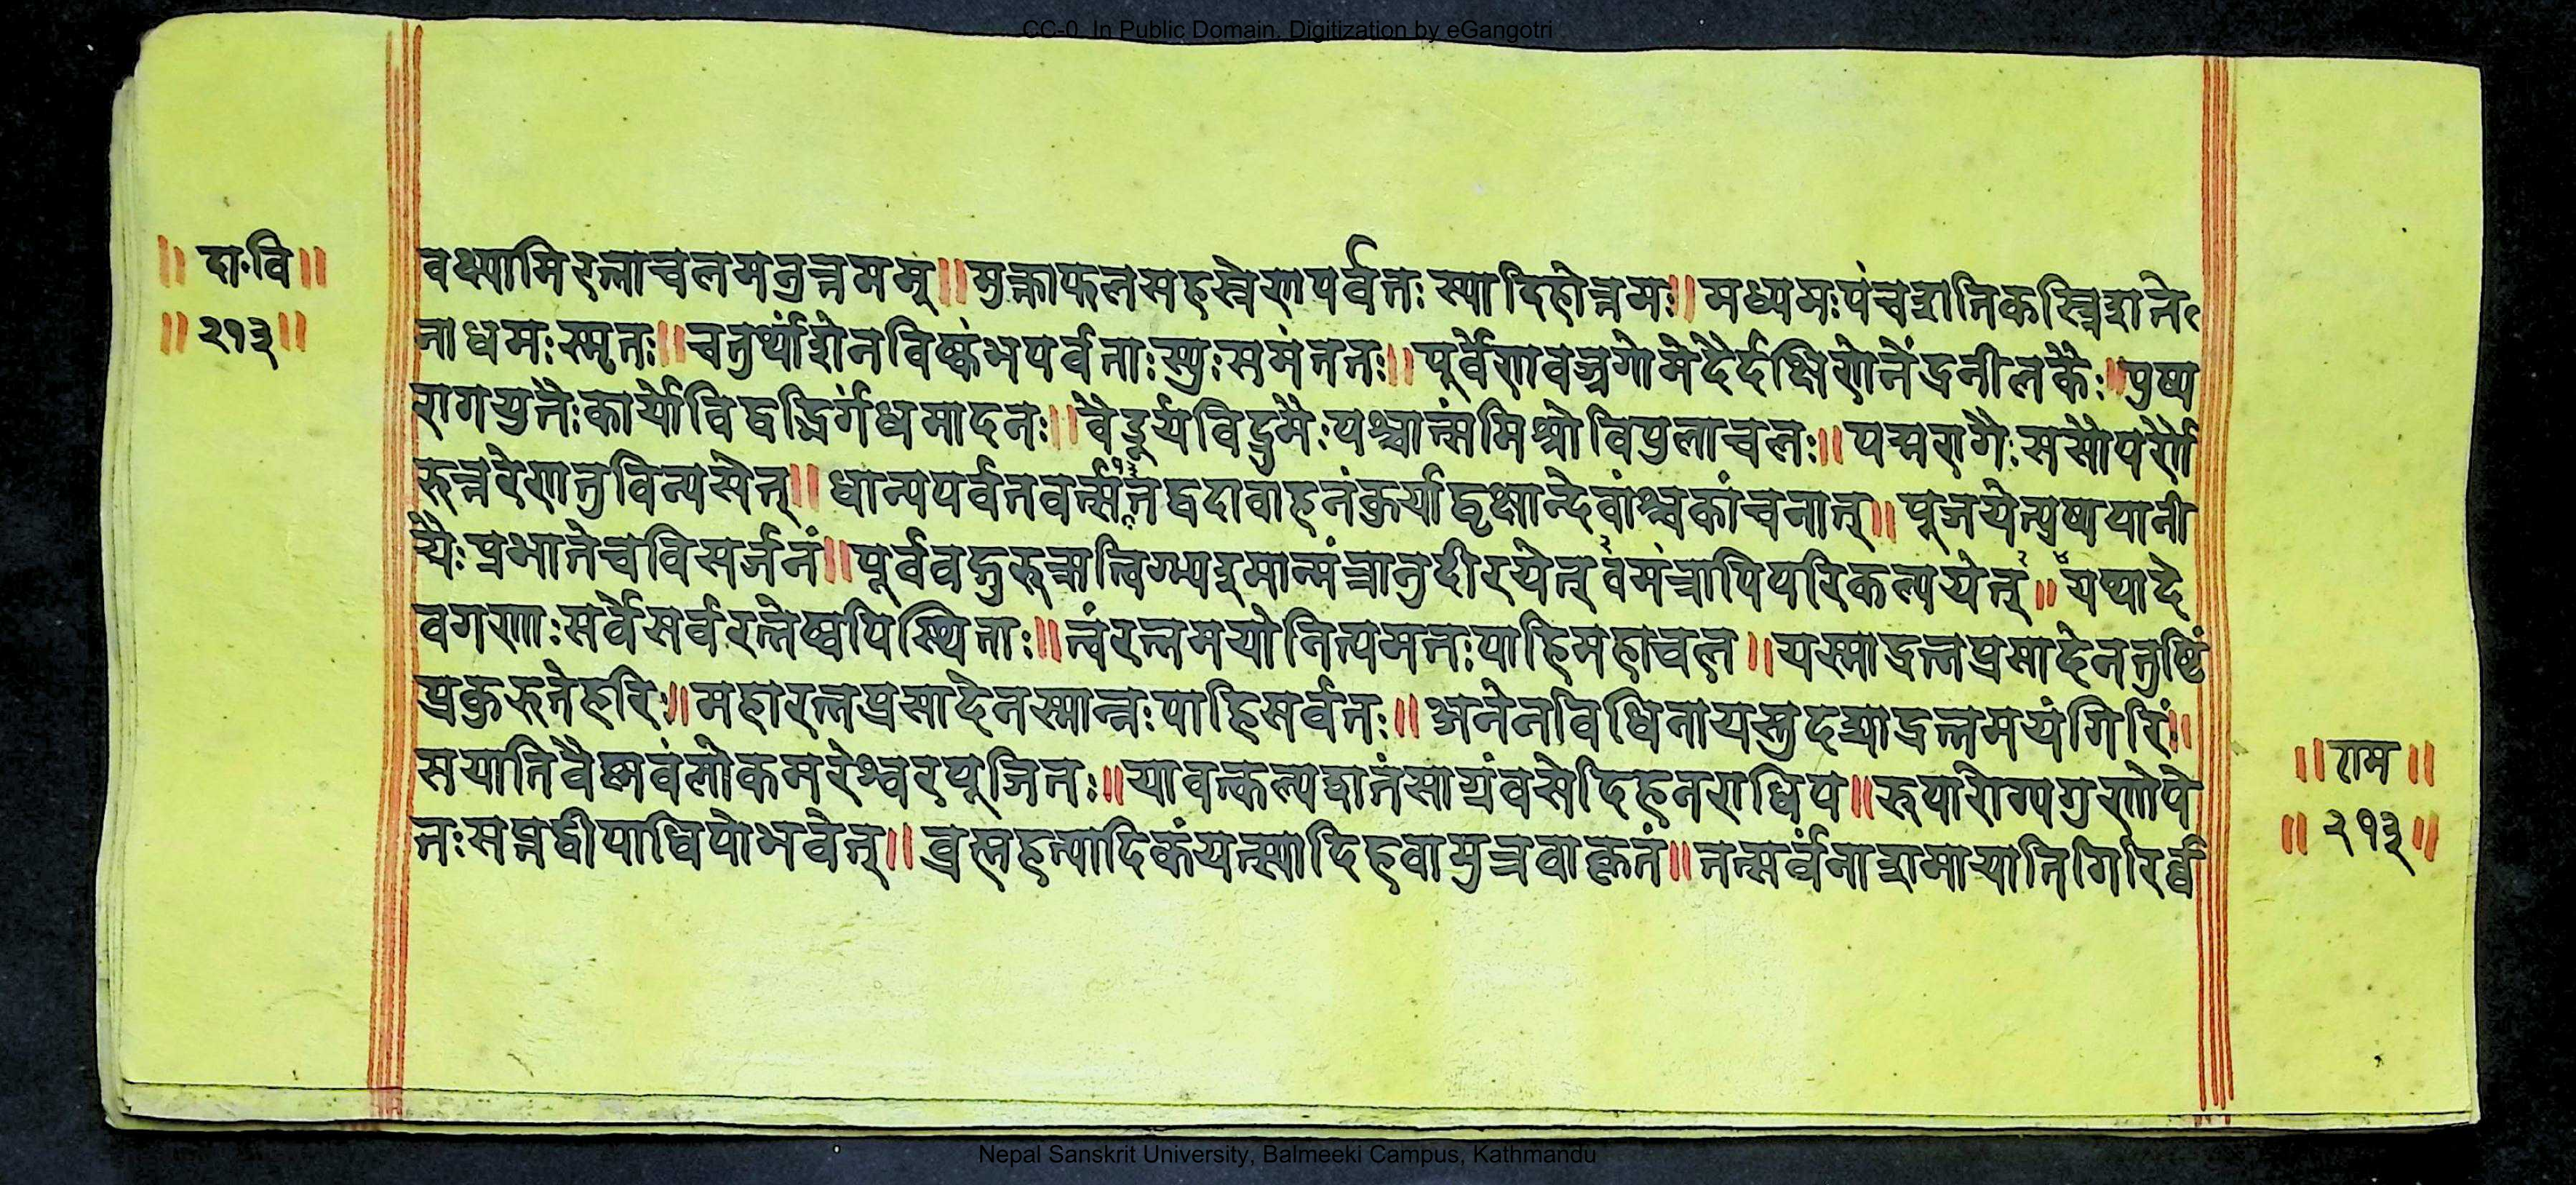 CC-0. In Public Domain. Digitization by eGangotri
॥ दा॰वि॥
॥२१३॥
वक्ष्यामिरत्नाचलमतुत्तमम्॥मुक्ताफलसहस्रेणपर्वतः स्यादिहोत्तमः॥मध्यमःपंचशतिकस्त्रिशते
नाधमःस्मृतः॥चतुर्थांशेनविष्कंभपर्वताःस्युःसमंततः॥पूर्वेणवज्रगोमेदैर्दक्षिणेनेंद्रनीलकैः॥पुष्प
रागयुतैःकार्योविद्वद्भिर्गंधमादनः॥वैडूर्यविद्रुमैःपश्चात्संमिश्रोविपुलाचलः॥पद्मरागैःससौपर्णै
रुत्तरेणतुविन्यसेत्॥धान्यपर्वतवत्सर्वंतद्वदावाहनंकुर्याद्वृक्षान्देवांश्चकांचनान्॥पूजयेत्पुष्पपानी
यैःप्रभातेचविसर्जनं॥पूर्ववद्गुरुऋत्विग्भ्यइमान्मंत्रानुदीरयेत् वमंत्रापिपरिकल्पयेत्॥यथादे
वगणाःसर्वेसर्वरत्नेष्वपिस्थिताः॥त्वंरत्नमयोनित्यमतःपाहिमहाचल॥यस्माद्रत्नप्रसादेनतुष्टिं
प्रकुरुतेहरिः॥महारत्नप्रसादेनस्मान्नःपाहिसर्वतः॥अनेनविधिनायस्तुदद्याद्रत्नमयंगिरिं॥
सयातिवैष्णवंलोकमरेश्वरपूजितः॥यावत्कल्पशतंसाग्रंवसेदिहनराधिप॥रुपारोग्यगुणोपे
तःसप्तद्वीपाधिपोभवेत्॥ब्रह्महत्यादिकंयत्स्यादिहवामुत्रवाकृतं॥तत्सर्वंनाशमायातिगिरिर्व
॥राम॥
॥२१३॥
Nepal Sanskrit University, Balmeeki Campus, Kathmandu